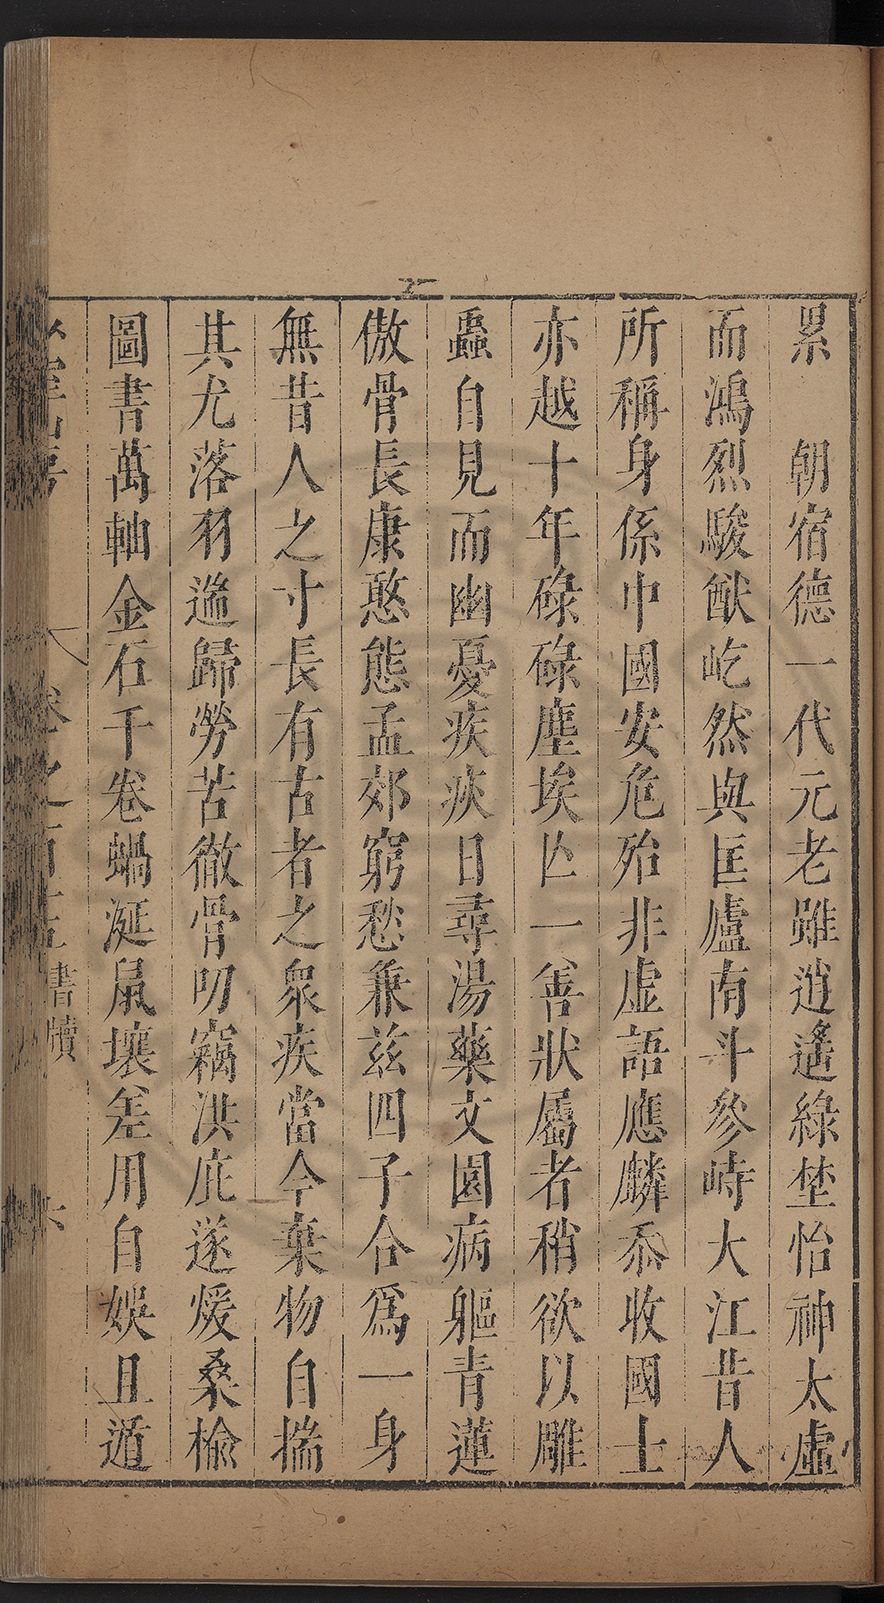 累　朝宿德一代元老雖逍遙綠埜怡神太虛
而鴻烈駿猷屹然與匡廬南斗參峙大江昔人
所稱身係中國安危殆非虛語應麟忝收國士
亦越十年碌碌塵埃亡一善狀屬者稍欲以雕
蟲自見而幽憂疾疢日尋湯藥文園病軀青蓮
傲骨長康憨態孟郊窮愁兼茲四子合爲一身
無昔人之寸長有古者之衆疾當今棄物自揣
其尤落羽遄歸勞苦徹骨叨竊洪庇遂煖桑榆
圖書萬軸金石千卷蝸涎鼠壤差用自娛且遁
卷之百十五 書牘 六